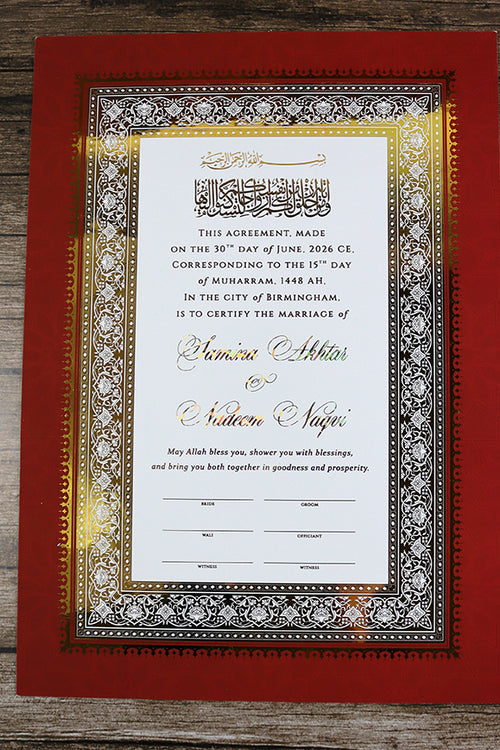 بسم الله الرحمن الرحيم
THIS AGREEMENT, MADE
ON THE 30TH DAY OF JUNE, 2026 CE,
CORRESPONDING TO THE 15TH DAY
OF MUHARRAM, 1448 AH,
IN THE CITY OF BIRMINGHAM,
IS TO CERTIFY THE MARRIAGE OF
Samina Akhtar
&
Nadeem Naqvi
May Allah bless you, shower you with blessings,
and bring you both together in goodness and prosperity.
BRIDE GROOM
WALI OFFICIANT
WITNESS WITNESS